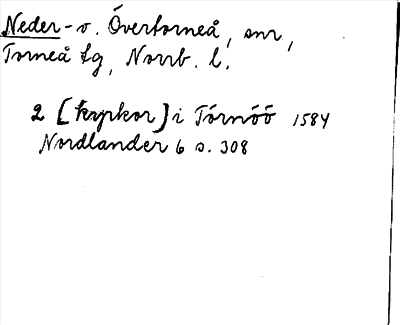 Neder- o. Övertorneå, snr,
Torneå tg, Norrb. l.
2 [kyrkor] i Tórnóó 1584
Nordlander 6 s. 308